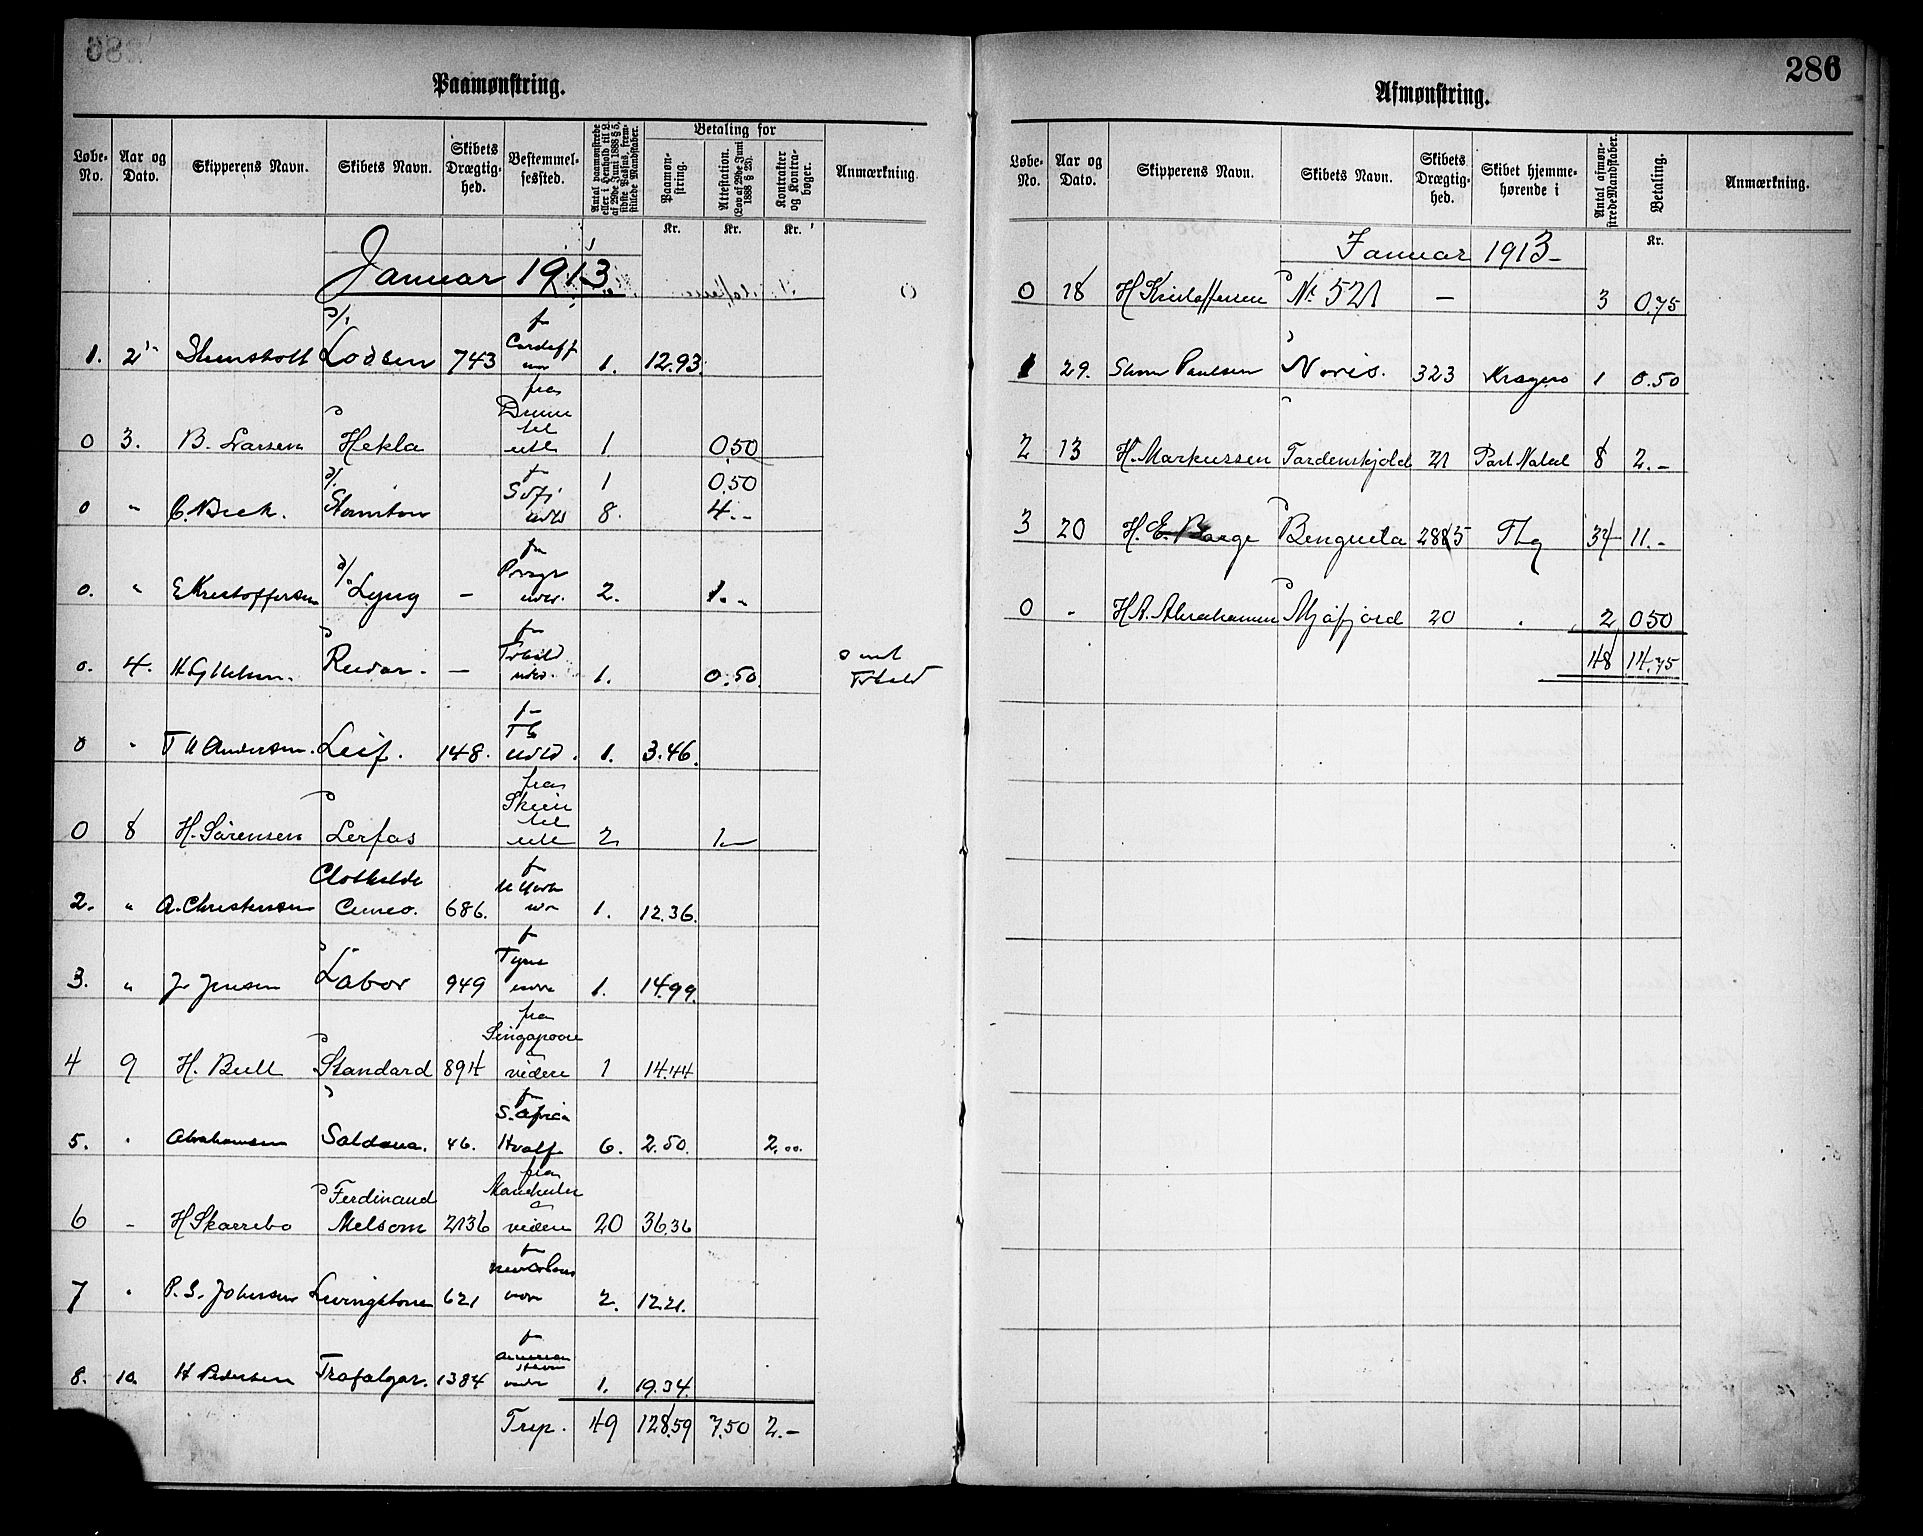 Paamønstring.
Løbe-No. Aar og Dato. Skipperens Navn. Skibets Navn. Skibets Drægtighed. Bestemmelsessted. Antal paamønstrede eller i Henhold til L. af 29de Juni 1888 § 5, sidste Passus, fremstillede Mandskaber. Betaling for Paamønstring. Attestation. (Lov af 29de Juni 1888 § 23). Kontrakter og Kontrabøger. Anmærkning.
Kr. Kr. Kr.
Januar 1913.
1. 2 Lodsen 743 fr Cardiff 1. 12.93.
0 3. B. Larsen Hekla fra til utl 1 0.50
1 0.50
0 " C. Beck. 8. 4.-
0. " E Kristoffersen Lyng – 2. 1.-
0. 4. Reidar. – 1. 0.50.
0 " T Andersen. Leif. 148. 1. 3.46.
0 8 H. Sørensen Lerfos fra Skien til utl 2 1.—
2. " A. Christensen Clothilde Cuneo. 686. 1. 12.36.
3. " J. Jensen Labor 949 fr Tyne 1. 14.99.
4 9 H. Bull Standard 894 fra Singapoore videre 1 14.44
5. " Abrahamsen Saldana. 46. fr S. Africa Hvalf 6. 2.50. 2.00.
6 - H Skarrebo Ferdinand Melsom 2136 fra Manchester videre 20 36.36
7 " P. S. Johnsen Livingstone 621 fr New Orleans 2. 12.21.
8. 10. H Pedersen Trafalgar. 1384 1. 19.34.
Trsp. 49 128.59 7.50 2.-
286
Afmønstring.
Løbe-No. Aar og Dato. Skipperens Navn. Skibets Navn. Skibets Drægtighed. Skibet hjemmehørende i Antal afmønstrede Mandskaber. Betaling. Anmærkning.
Kr.
Januar 1913-
0 18 H Kristoffersen No. 521 – 3 0.75
1 29. Paulsen Noris. 323 Kragerø 1 0.50
2 13 H. Markussen Tordenskjold 21 Port Natal 8 2.-
3 20 H. E. Borge Benguela 2885 Tbg 34 11.-
0 - H A. Abrahamsen Mjøfjord 20 " 2 0.50
48 14.75